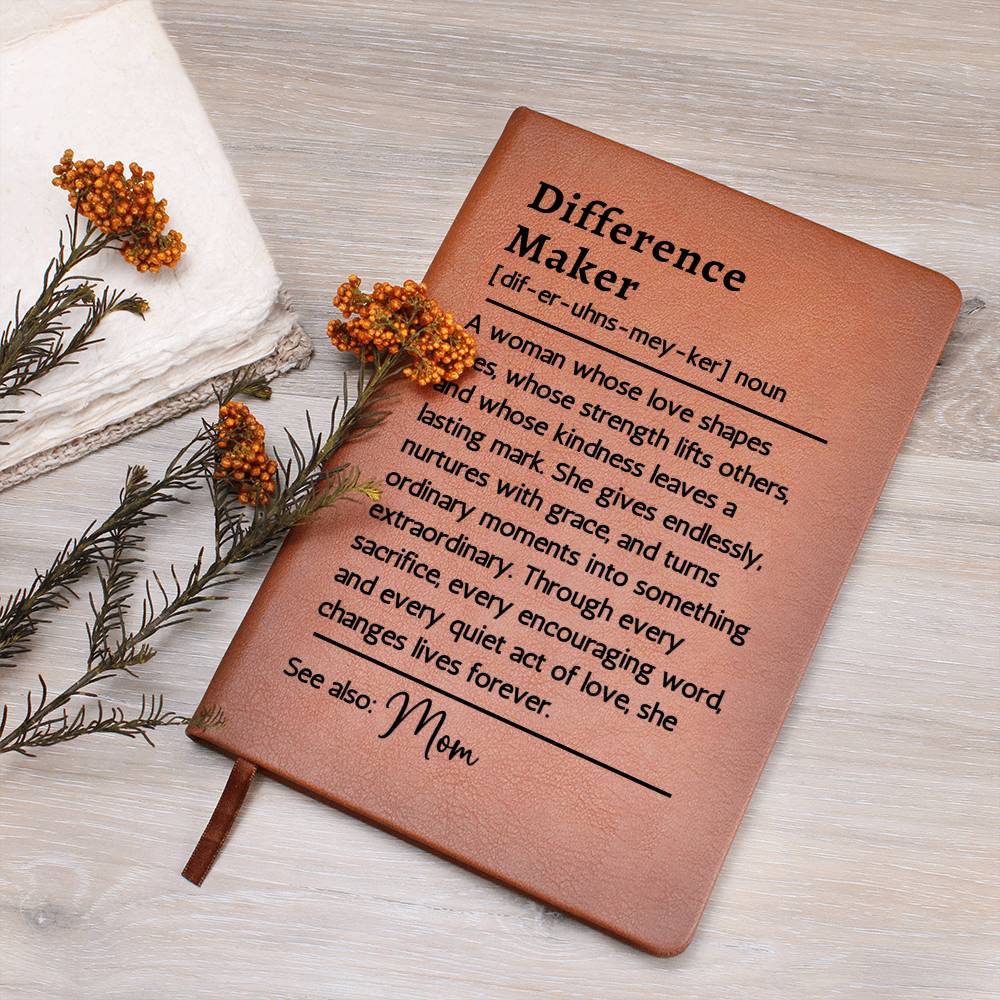 Difference
Maker
[dif-er-uhns-mey-ker] noun
A woman whose love shapes
whose strength lifts others,
and whose kindness leaves a
lasting mark. She gives endlessly,
nurtures with grace, and turns
ordinary moments into something
extraordinary. Through every
sacrifice, every encouraging word,
and every quiet act of love, she
changes lives forever.
See also: Mom